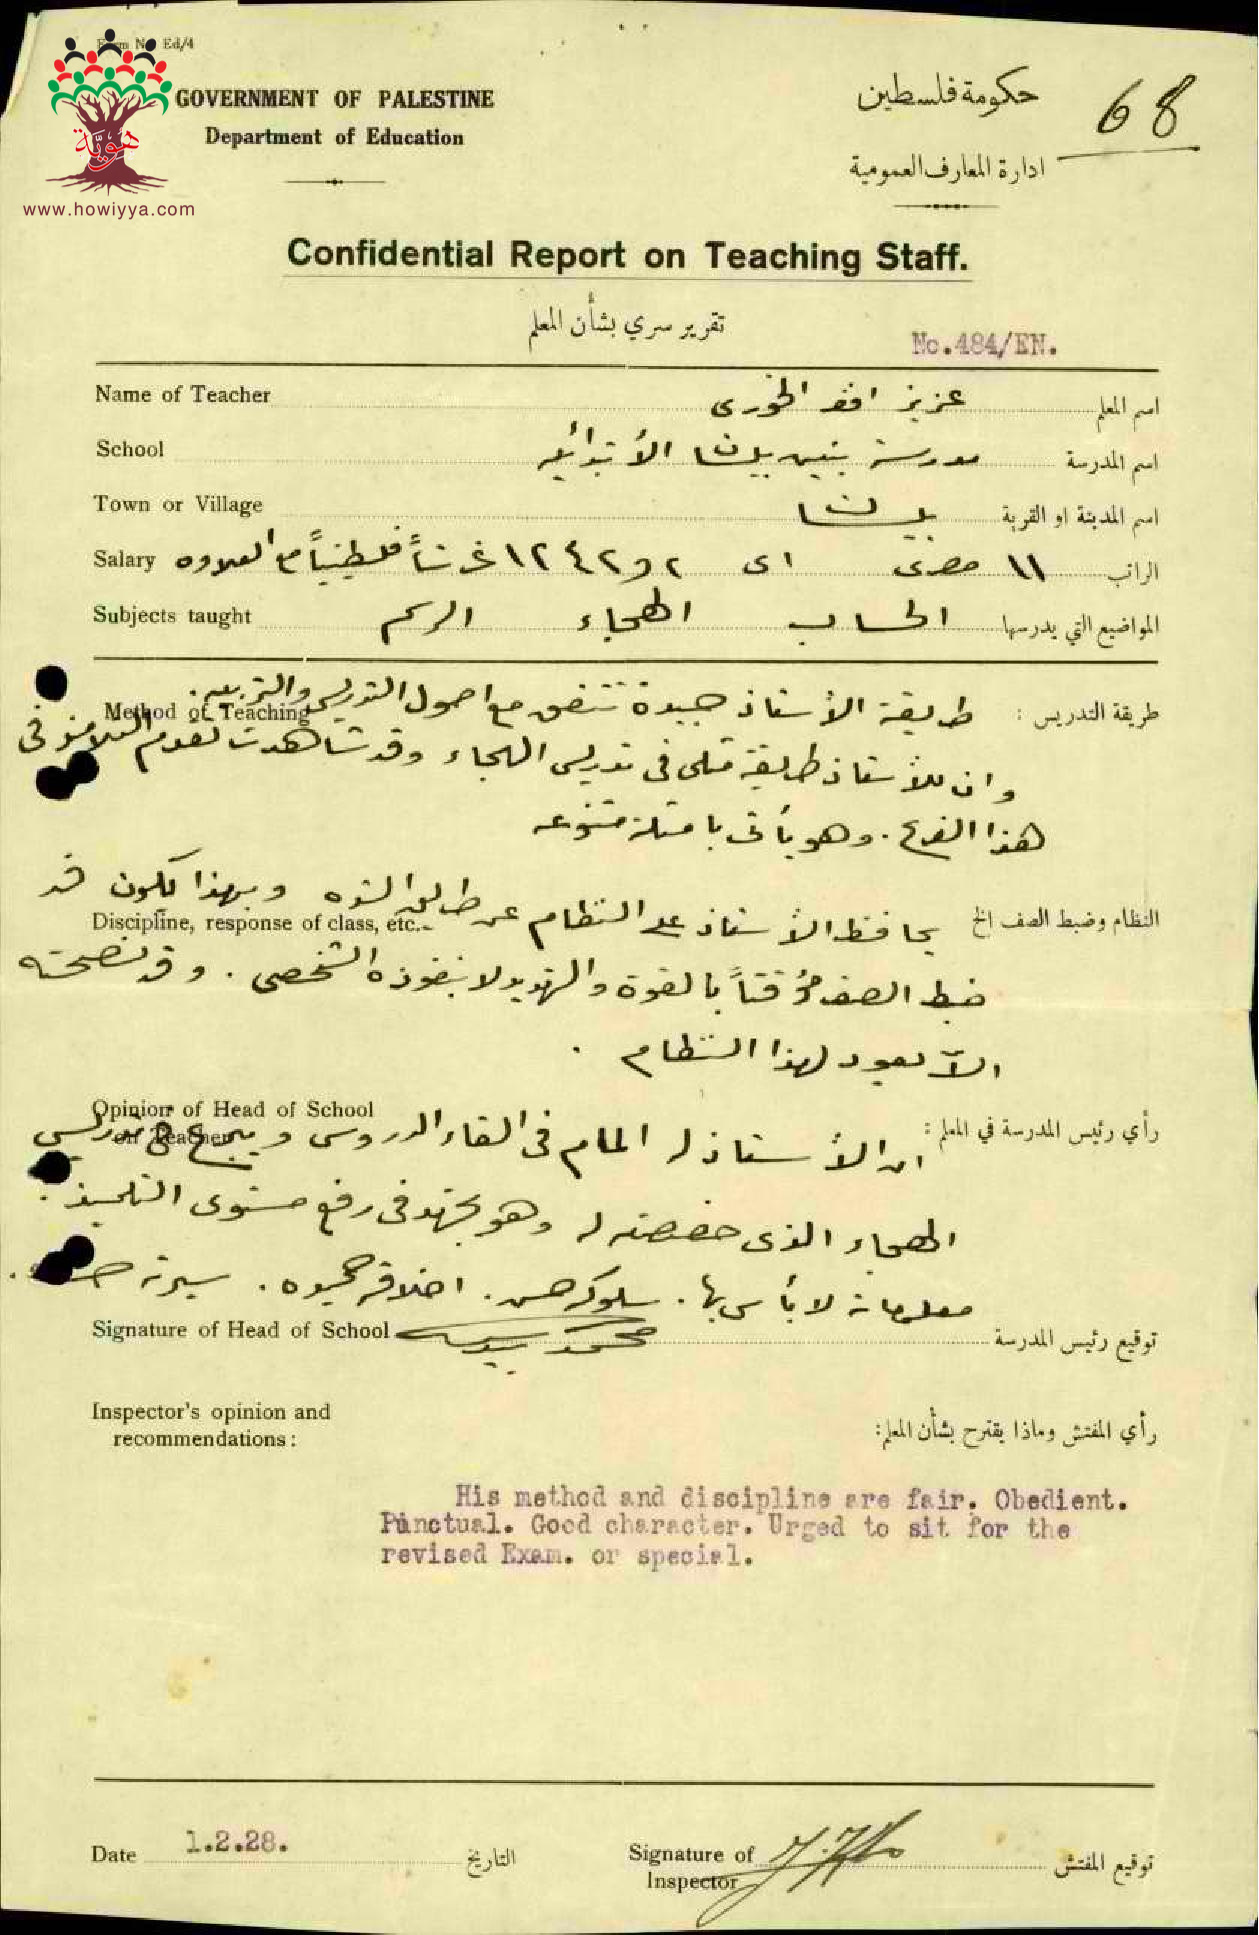 Form No Ed/4
هَوِيَّة
www.howiyya.com
GOVERNMENT OF PALESTINE
Department of Education
حكومة فلسطين
ادارة المعارف العمومية
68
Confidential Report on Teaching Staff.
تقرير سري بشأن المعلم
No.484/EN.
Name of Teacher عزيز افندي الخوري اسم المعلم
School مدرسة بنين بيسان الأبتدائيه اسم المدرسة
Town or Village بيسان اسم المدينة او القرية
Salary ١١ مصرى اى ١٢٤٢و٢ غرشاً فلسطينياً مع العلاوه الراتب
Subjects taught الحساب الهجاء الرسم المواضيع التي يدرسها
Method of Teaching
طريقة التدريس : طريقة الأستاذ جيدة تتفق مع اصول التدريس والتربيه.
وان للأستاذ طريقة مثلى في تدريس الهجاء وقد شاهدت تقدم التلاميذ في
هذا الفرع. وهو يأتي بامثلة متنوعه
Discipline, response of class, etc.
النظام وضبط الصف الخ يحافظ الأستاذ على النظام عن طريق الشده وبهذا يكون قد
ضبط الصف مؤقتاً بالقوة والتهديد لا بنفوذه الشخصي. وقد نصحته
الآ يعود لهذا النظام.
Opinion of Head of School
on Teacher
رأي رئيس المدرسة في المعلم : ان الأستاذ له المام في القاء الدروس ويبرع في تدريس
الهجاء الذي خصصته له وهو يجتهد في رفع مستوى التلميذ.
معلوماته لا بأس بها. سلوكه حسن. اخلاقه جيده. سيرته حسنه.
Signature of Head of School توقيع رئيس المدرسة
Inspector's opinion and
recommendations:
رأي المفتش وماذا يقترح بشأن المعلم:
His method and discipline are fair. Obedient.
Punctual. Good character. Urged to sit for the
revised Exam. or special.
Date 1.2.28. التاريخ
Signature of
Inspector
توقيع المفتش